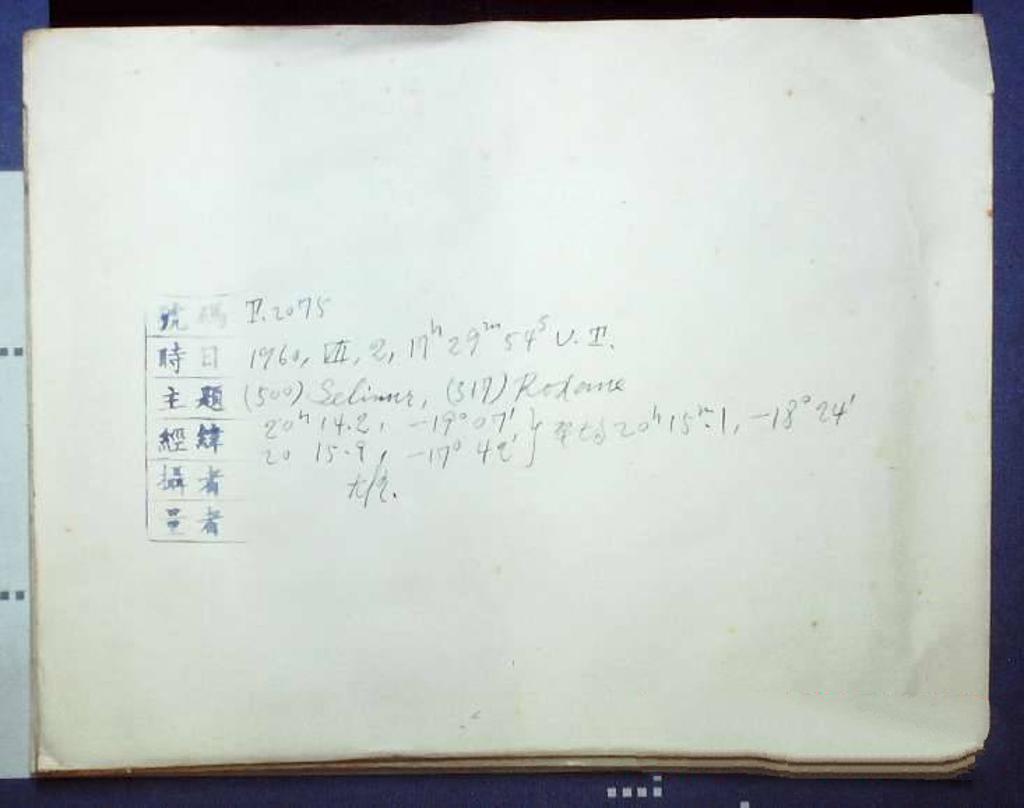 號碼 P.2075
時日 1960, VII, 2, 17ʰ 29ᵐ 54ˢ U.T.
主題 (500) Selinur, (517) Rodame
經緯 20ʰ 14.2, -19° 07' } 20ʰ 15ᵐ.1, -18° 24'
20 15.9, -17° 42'
攝者
量者